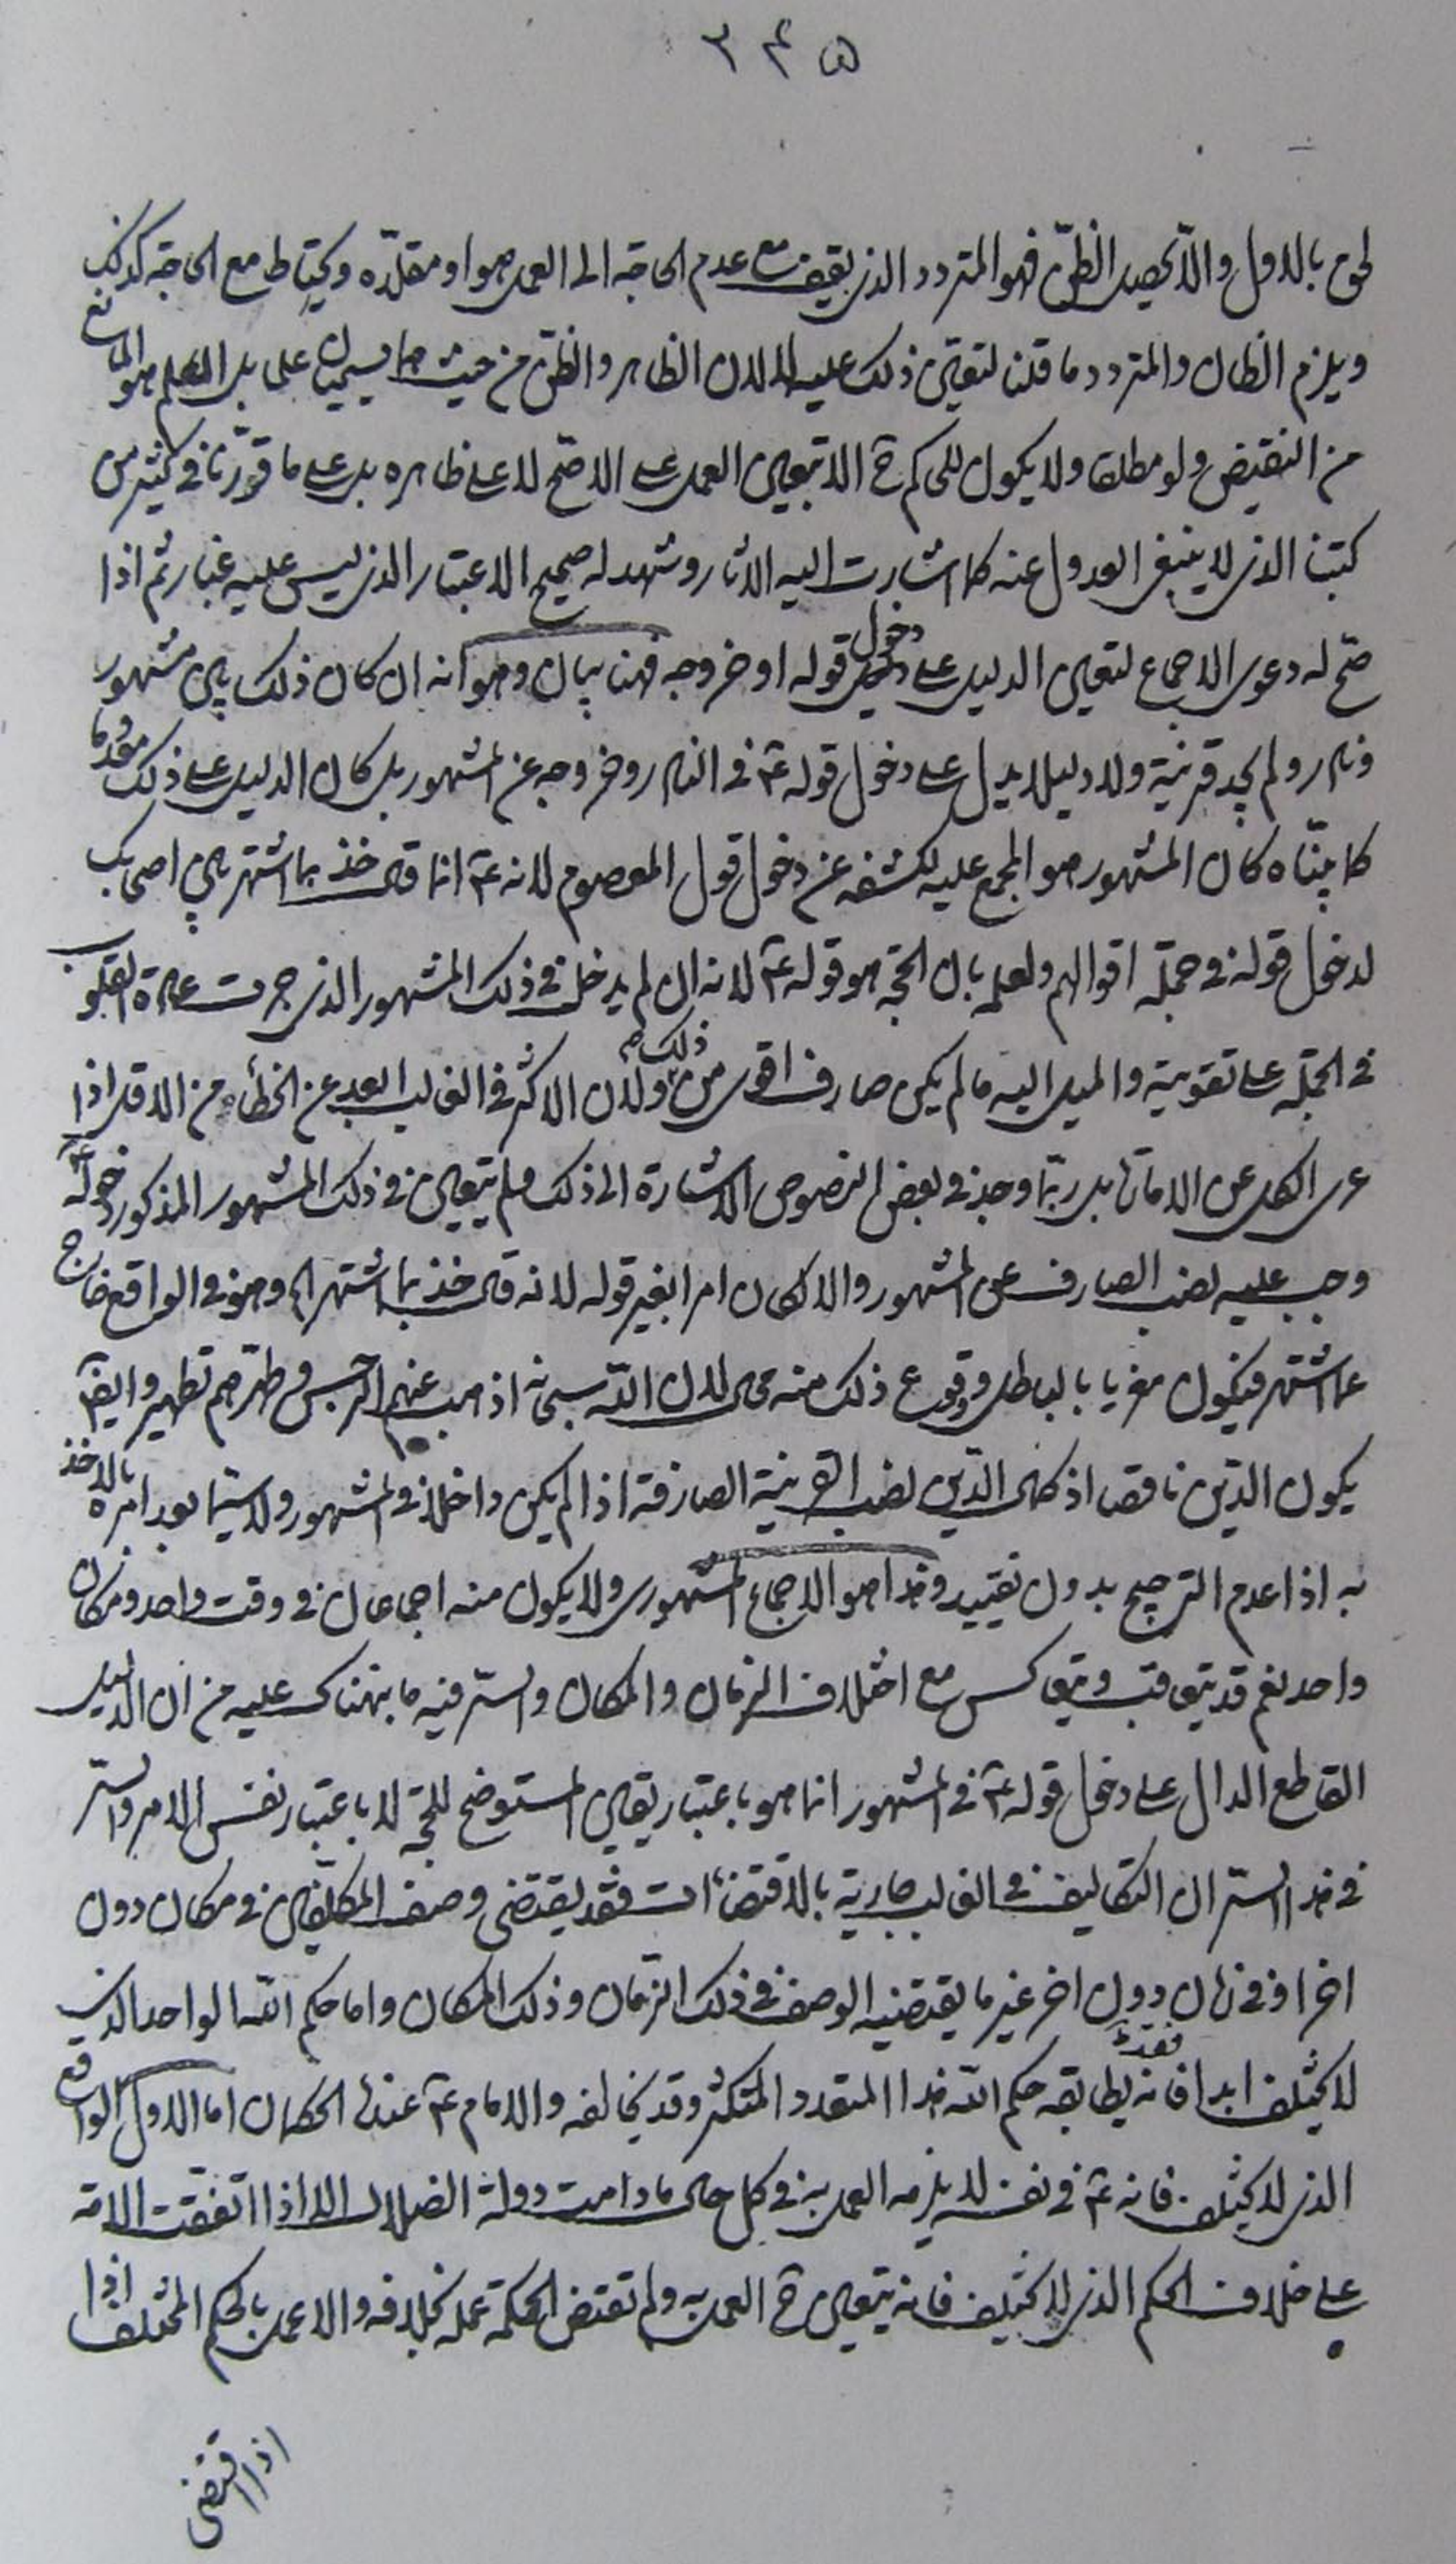 ٣٤٥
لحق بالاول والا يحصل الظن فهو المتردد الذي يقف مع عدم الحاجة الى العمل هو او مقلده ويحتاط مع الحاجة كذلك
ويلزم الظان والمتردد ما قلنا لتعين ذلك عليه لان الظاهر والظن من حيث هما يسميان علما بل العلم هو المانع
من النقيض ولو مطلقا ولا يكون للحاكم ح الا تبعين العمل على الاصح لا على ظاهره بل على ما قررنا في كثير من
كتبنا الذي لا ينبغي العدول عنه كما اشارت اليه الاثار وشهد له صحيح الاعتبار الذي ليس عليه غبار ثم اذا
صح له دعوى الاجماع لتعين الدليل على دخول قوله او خروجه فهنا بيان وهو انه ان كان ذلك بين مشهور
ونادر ولم يجد قرينة ولا دليلا يدل على دخول قوله ع في النادر وخروجه عن المشهور بل كان الدليل على ذلك مفقودا
كما بيناه كان المشهور هو المجمع عليه لكشفه عن دخول قول المعصوم لانه ع انما قال خذ بما اشتهر بين اصحابك
لدخول قوله في جملة اقوالهم ولعلمه بان الحجة هو قوله ع لانه ان لم يدخل في ذلك المشهور الذي جرت عادة القلوب
في الجملة على تقويته والميل اليه ما لم يكن صارف اقوى من ذلك ولان الاكثر في الغالب ابعد عن الخطأ من الاقل اذا
عرى الكل عن الامارات بل ربما وجد في بعض النصوص الاشارة الى ذلك فلم يتعين في ذلك المشهور المذكور دخوله ع
وجب عليه نصب الصارف عن المشهور والا لكان امرا بغير قوله لانه قال خذ بما اشتهر اه وهو في الواقع خارج
عما اشتهر فيكون مغريا بالباطل ووقوع ذلك منه محال لان الله سبحانه اذهب عنهم الرجس وطهرهم تطهيرا وايضا
يكون الدين ناقصا اذ كمال الدين نصب القرينة الصارفة اذا لم يكن داخلا في المشهور ولا سيما بعد امره بالاخذ
به اذا عدم الترجيح بدون تقييد وهذا هو الاجماع المشهوري ولا يكون منه اجماعان في وقت واحد ومكان
واحد نعم قد يتعاقب ويتعاكس مع اختلاف الزمان والمكان والسر فيه ما نبهناك عليه من ان الدليل
القاطع الدال على دخول قوله ع في المشهور انما هو باعتبار يقين المستوضح للحجة لا باعتبار نفس الامر والسر
في هذا السر ان التكاليف في الغالب جارية بالاقتضاءات فقد يقتضي وصف المكلفين في مكان دون
اخر او في زمان دون اخر غير ما يقتضيه الوصف في ذلك الزمان وذلك المكان واما حكم الله الواحد الذي
لا يختلف ابدا فانه قد يطابقه حكم الله هذا المتعدد المتكثر وقد يخالفه والامام ع عنده الحكمان اما الاول الواقع
الذي لا يختلف فانه ع في نفسه لا يلزمه العمل به في كل حال ما دامت دولة الضلال الا اذا اتفقت الامة
على خلاف الحكم الذي لا يختلف فانه يتعين ح العمل به ولم تقتض الحكمة عمله بخلافه والا عمل بالحكم المختلف اذا
اذا اقتضى